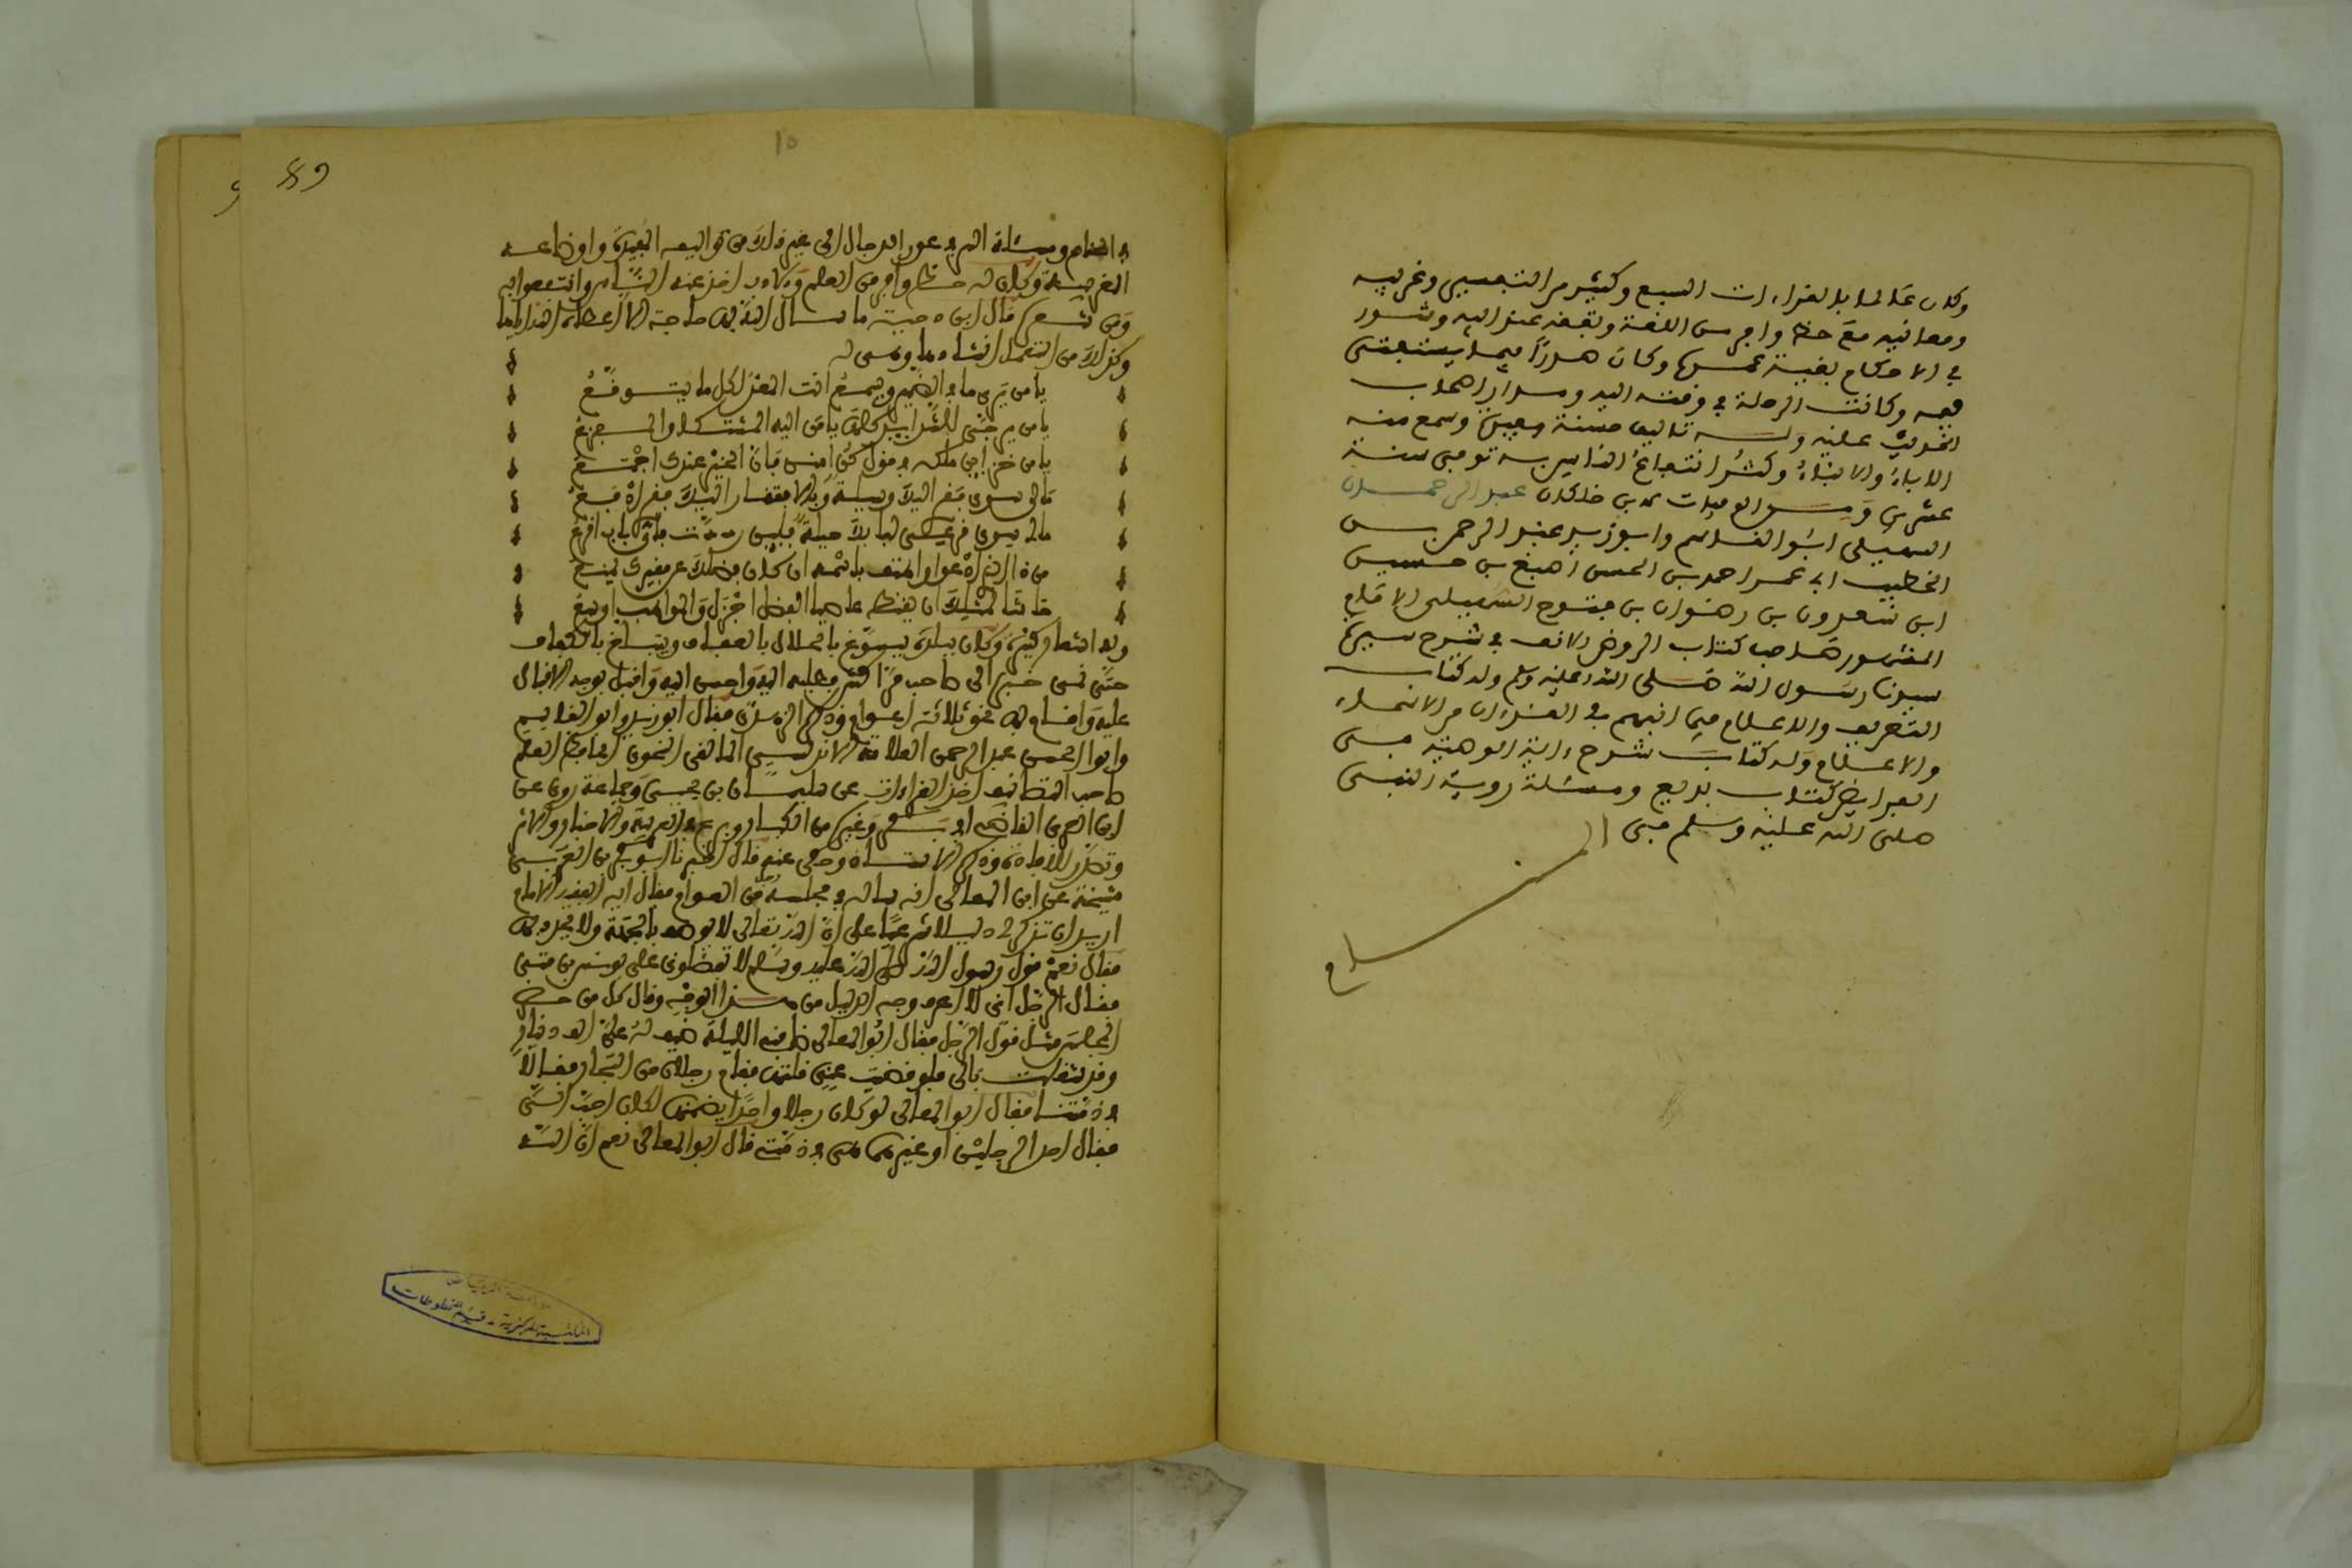 وكان عالما بالقراءات السبع وكثير من التفسير وغريبه
ومعانيه مع حظ وافر من اللغة وتفقه عند اليه وشور
في الاحكام بقية عمره وكان صدرا فيما يستفتى
فيه وكانت الرحلة في وقته اليه ومدار اصحاب
الحديث عليه وله تاليف حسنة وسمع منه
الاباء والابناء وكثر انتفاع الناس به توفي سنة
عشرين ومن الوفيات لابن خلكان عبد الرحمان
السهيلي ابو القاسم وابو زيد عبد الرحمن بن
الخطيب ابي عمر احمد بن الحسن اصبغ بن حسين
ابن سعدون بن رضوان بن فتوح السهيلي الامام
المشهور صاحب كتاب الروض الانف في شرح سيرة
سيدنا رسول الله صلى الله عليه وسلم وله كتاب
التعريف والاعلام فيما انبهم في القرءان من الاسماء
والاعلام وله كتاب شرح ءاية الوصية في
الفرايض كتاب بديع ومسئلة روية النبي
صلى الله عليه وسلم في الـ
منـــام
89
10
في المنام ومسئلة السر في عور الدجال الى غير ذلك من تواليفه المفيدة واوضاعه
الغريبة وكان له حظ وافر من العلم والادب اخذ عنه الناس وانتفعوا به
ومن شعره قال ابن دحية ما سال الله بها حاجة الا اعطاه الله اياها
وكذلك من استعمل انشادها وهي له
يا من يرى ما في الضمير ويسمع انت المعد لكل ما يتوقع
يا من يرجى للشدايد كلها يا من اليه المشتكى والمفزع
يا من خزاين ملكه في قول كن امنن فان الخير عندك اجمع
مالي سوى فقري اليك وسيلة وبالافتقار اليك فقري ادفع
مالي سوى قرعي لبابك حيلة فلين رددت فاي باب اقرع
من ذا الذي ادعو واهتف باسمه ان كان فضلك عن فقيرك يمنع
حاشا لمثلك ان يقنط عاصيا الفضل اجزل والمواهب اوسع
وله اشعار كثيرة وكان ببلده يتسوغ بالعفاف ويتبلغ بالكفاف
حتى نمى خبره الى صاحب مراكش فطلبه اليه واحسن اليه واقبل بوجه الاقبال
عليه واقام بها نحو ثلاثة اعوام وذكره فقال ابو زيد وابو القاسم
وابو الحسن عبد الرحمن العلامة الاندلسي المالقي النحوي الحافظ العلم
صاحب التصانيف اخذ القراءات عن سليمان بن يحيى وجماعة روى عن
ابن العربي القاضي ابي بكر وغيره من الكبار وبرع في العربية والاخبار والاثر
وتصدر للافادة وذكر الاثار وحكى عنه قال اخبرنا ابو بكر بن العربي
شيخه عن ابي المعالي انه ساله في مجلسه من العوام فقال ايه الفقيه الامام
اريد ان تذكر لي دليلا شرعيا على ان الله تعالى لا يوصف بالجهة ولا يحدد بها
فقال نعم قول رسول الله صلى الله عليه وسلم لا تفضلوني على يونس بن متى
فقال الرجل اني لا اعرف وجه الدليل من هذا الوجه وقال كل من حضر
المجلس مثل قول الرجل فقال ابو المعالي ضافني الليلة ضيف له علي الف دينار
وقد شغلت بالي فلو قضيت عني قلتها فقام رجلان من التجار فقالا
في ذمتنا فقال ابو المعالي لو كان رجلا واحدا يضمنها لكان احب الي
فقال احد الرجلين او غيرهما هي في ذمتي قال ابو المعالي نعم ان الله
جامعة الرياض
المكتبة المركزية - قسم المخطوطات